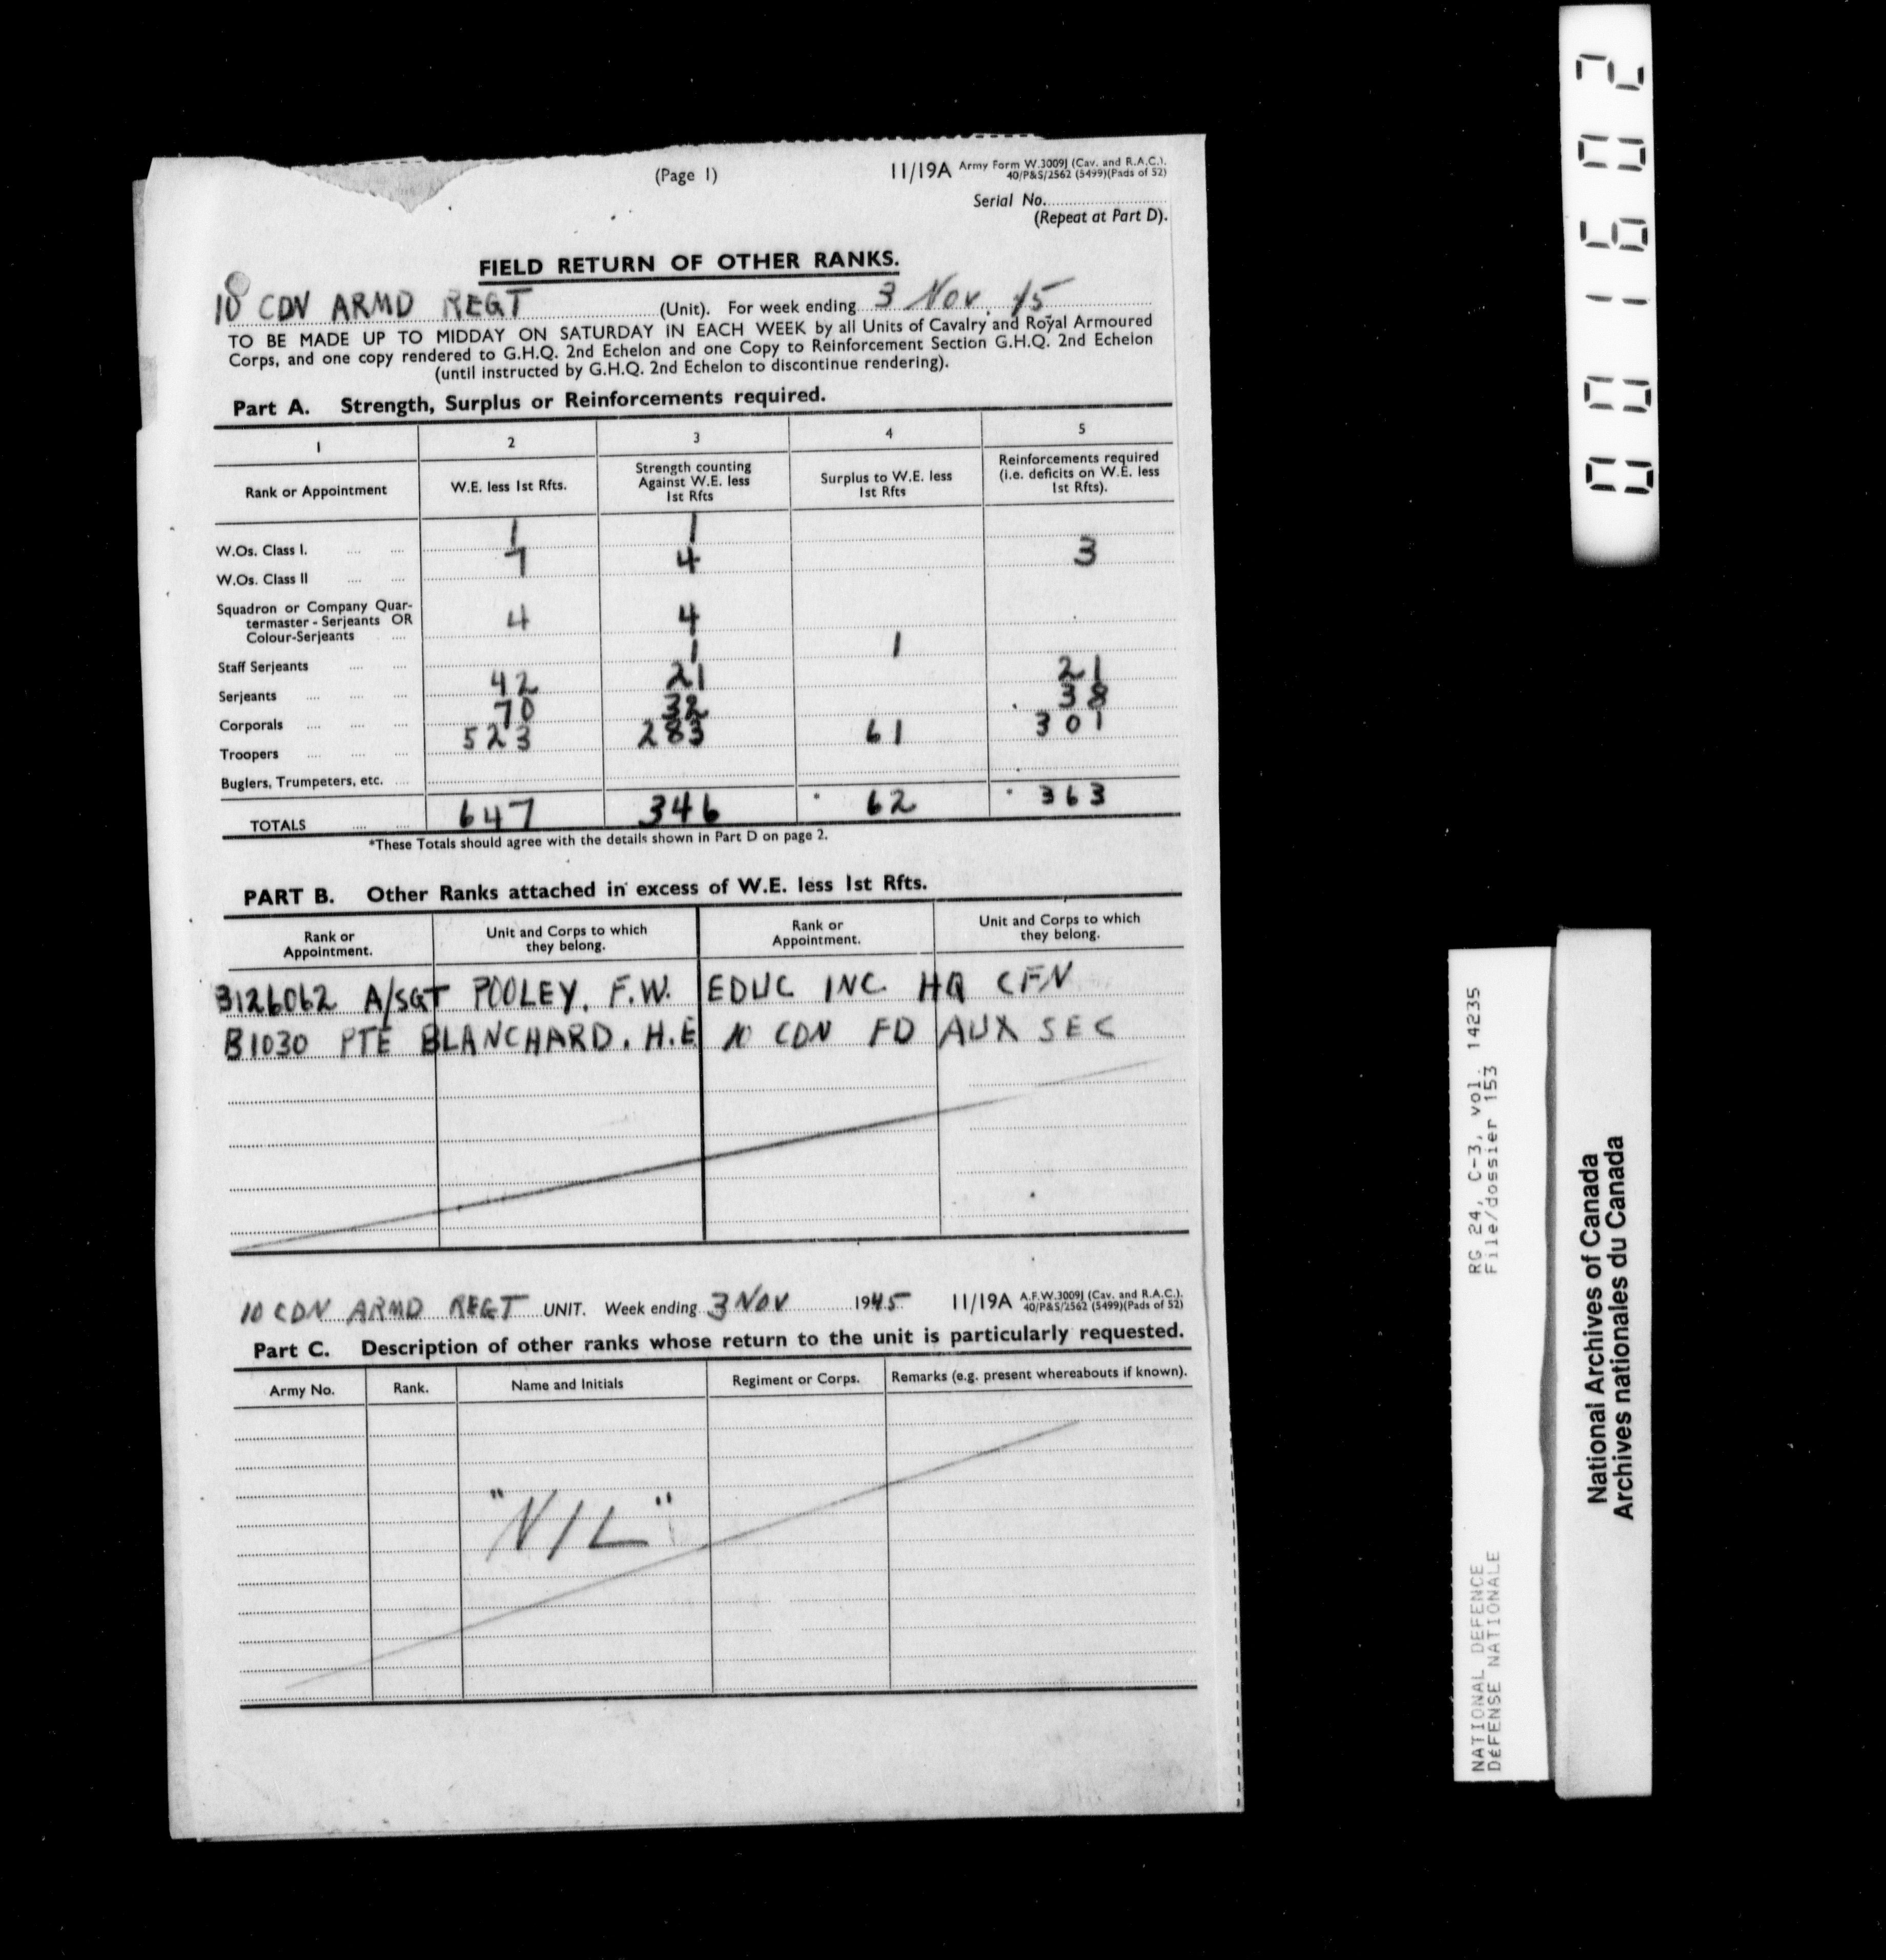 (Page 1)
11/19A Army Form W.3009J (Cav. and R.A.C.).
40/P&S/2562 (5499)(Pads of 52)
Serial No.
(Repeat at Part D).
FIELD RETURN OF OTHER RANKS.
10 CDN ARMD REGT (Unit). For week ending 3 Nov. 45
TO BE MADE UP TO MIDDAY ON SATURDAY IN EACH WEEK by all Units of Cavalry and Royal Armoured
Corps, and one copy rendered to G.H.Q. 2nd Echelon and one Copy to Reinforcement Section G.H.Q. 2nd Echelon
(until instructed by G.H.Q. 2nd Echelon to discontinue rendering).
Part A. Strength, Surplus or Reinforcements required.
1 2 3 4 5
Rank or Appointment
W.E. less 1st Rfts.
Strength counting
Against W.E. less
1st Rfts
Surplus to W.E. less
1st Rfts
Reinforcements required
(i.e. deficits on W.E. less
1st Rfts).
W.Os. Class I. .... .... 1 1
W.Os. Class II .... .... 7 4 3
Squadron or Company Quar-
termaster - Serjeants OR
Colour-Serjeants .... 4 4
Staff Serjeants .... .... 1 1
Serjeants .... .... .... 42 21 21
Corporals .... .... .... 70 32 38
Troopers .... .... .... 523 283 61 301
Buglers, Trumpeters, etc. ....
TOTALS .... .... 647 346 62 363
*These Totals should agree with the details shown in Part D on page 2.
PART B. Other Ranks attached in excess of W.E. less 1st Rfts.
Rank or
Appointment.
Unit and Corps to which
they belong.
Rank or
Appointment.
Unit and Corps to which
they belong.
B126062 A/SGT POOLEY, F.W. EDUC INC HQ CFN
B1030 PTE BLANCHARD. H.E 10 CDN FD AUX SEC
10 CDN ARMD REGT UNIT. Week ending 3 NOV 1945 11/19A A.F.W.3009J (Cav. and R.A.C.).
40/P&S/2562 (5499)(Pads of 52)
Part C. Description of other ranks whose return to the unit is particularly requested.
Army No. Rank. Name and Initials Regiment or Corps. Remarks (e.g. present whereabouts if known).
"NIL"
001602
RG 24, C-3, vol. 14235
File/dossier 153
NATIONAL DEFENCE
DÉFENSE NATIONALE
National Archives of Canada
Archives nationales du Canada